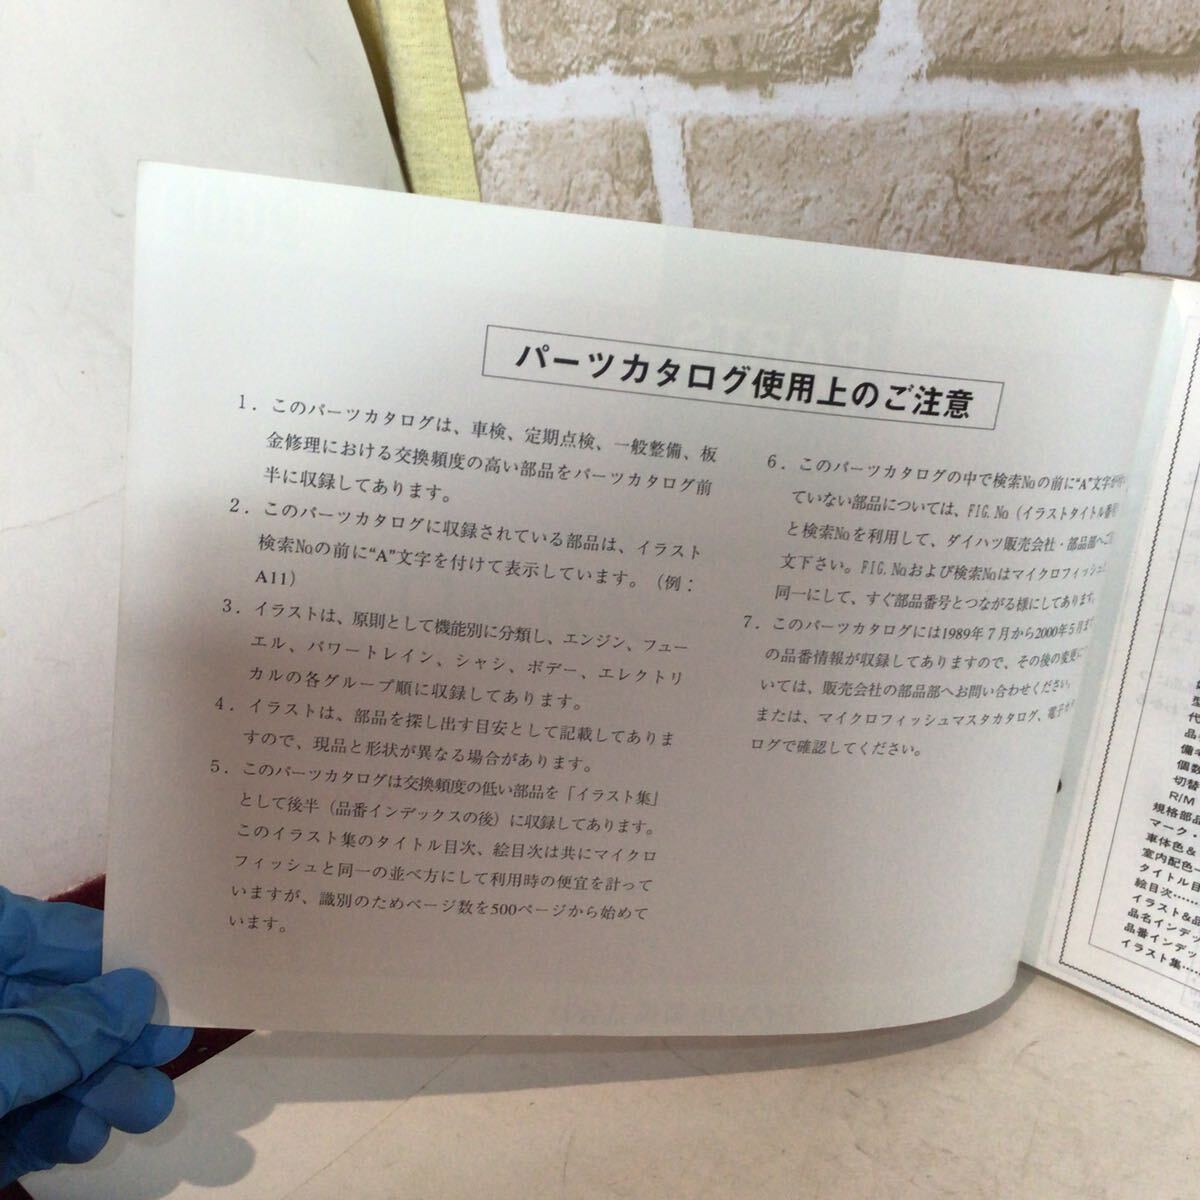 パーツカタログ使用上のご注意
1．このパーツカタログは、車検、定期点検、一般整備、板
金修理における交換頻度の高い部品をパーツカタログ前
半に収録してあります。
2．このパーツカタログに収録されている部品は、イラスト
検索№の前に“A”文字を付けて表示しています。（例：
A11）
3．イラストは、原則として機能別に分類し、エンジン、フュー
エル、パワートレイン、シャシ、ボデー、エレクトリ
カルの各グループ順に収録してあります。
4．イラストは、部品を探し出す目安として記載してありま
すので、現品と形状が異なる場合があります。
5．このパーツカタログは交換頻度の低い部品を「イラスト集」
として後半（品番インデックスの後）に収録してあります。
このイラスト集のタイトル目次、絵目次は共にマイクロ
フィッシュと同一の並べ方にして利用時の便宜を計って
いますが、識別のためページ数を500ページから始めて
います。
6．このパーツカタログの中で検索№の前に“A”文字が付
ていない部品については、FIG.№（イラストタイトル番号
と検索№を利用して、ダイハツ販売会社・部品部へご
文下さい。FIG.№および検索№はマイクロフィッシュ
同一にして、すぐ部品番号とつながる様にしてあります。
7．このパーツカタログには1989年7月から2000年5月ま
の品番情報が収録してありますので、その後の変更に
いては、販売会社の部品部へお問い合わせください。
または、マイクロフィッシュマスタカタログ、電子カタ
ログで確認してください。
型
代
品
備考
個数
切替
R/M
規格部品
マーク・
車体色＆
室内配色一
タイトル目
絵目次……
イラスト＆品
品名インデッ
品番インデッ
イラスト集……